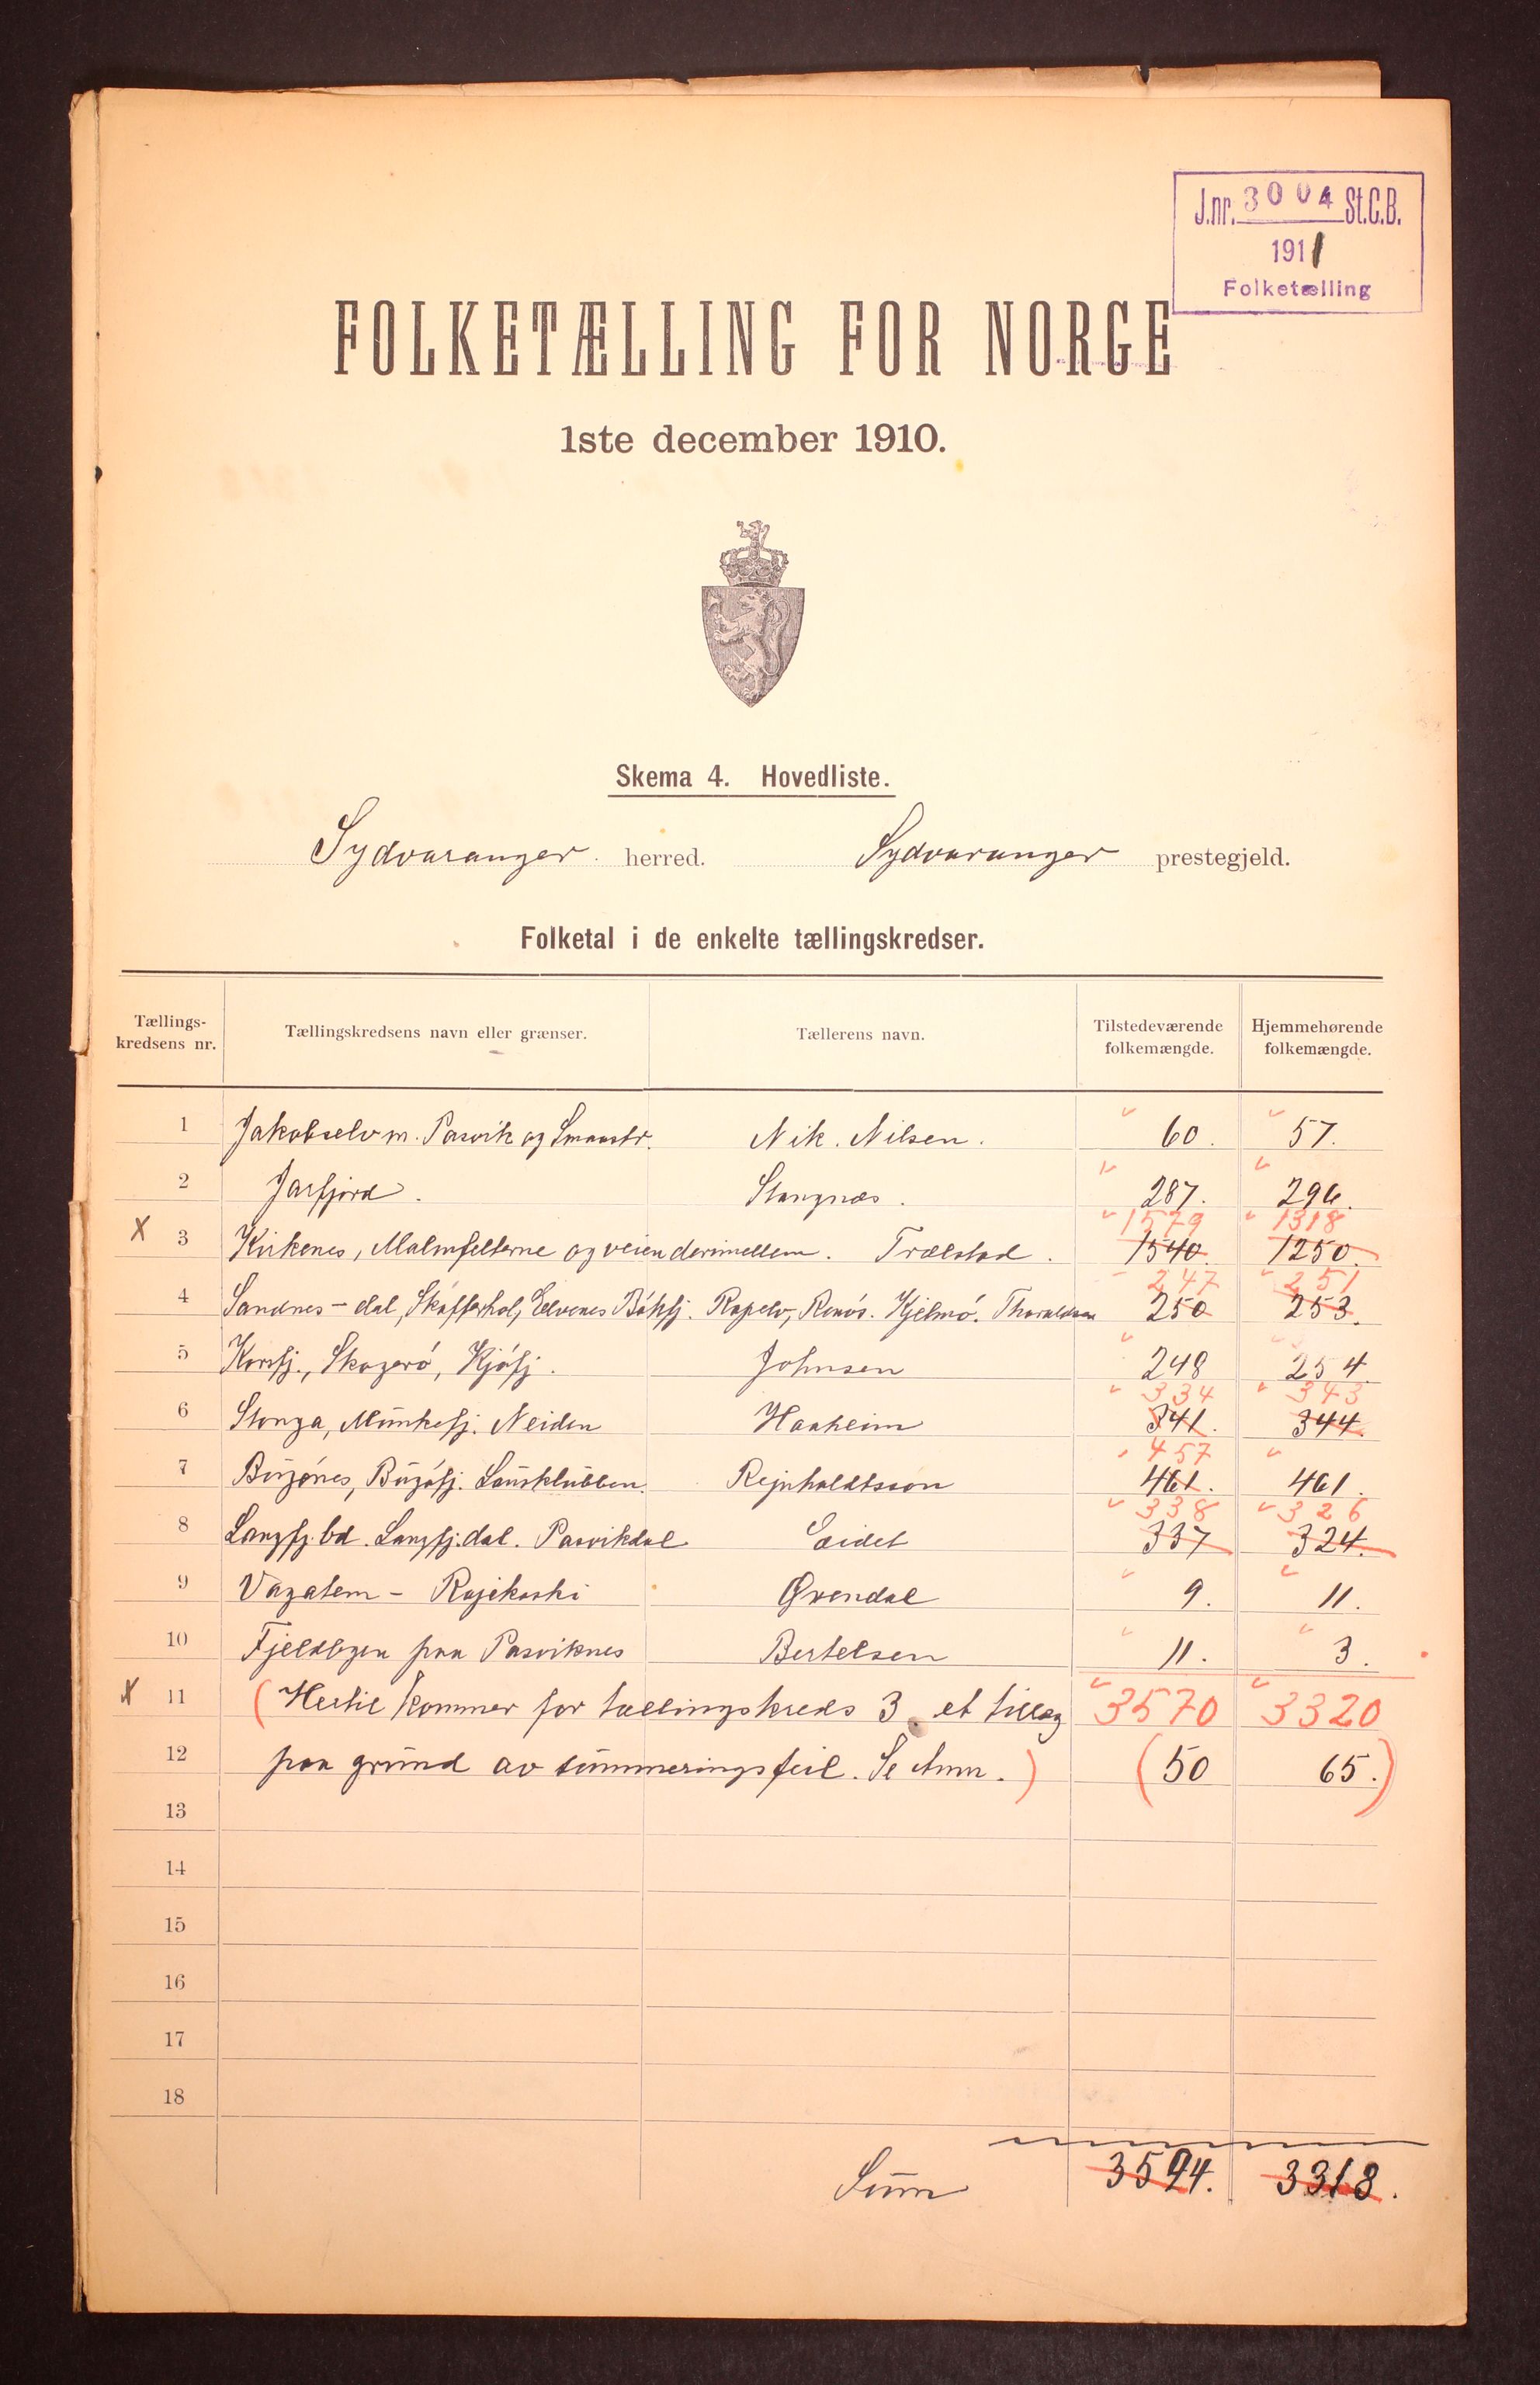 J.nr. 3004 St.C.B.
1911
Folketælling
FOLKETÆLLING FOR NORGE
1ste december 1910.
Skema 4. Hovedliste.
Sydvaranger herred. Sydvaranger prestegjeld.
Folketal i de enkelte tællingskredser.
Tællings-
kredsens nr.
Tællingskredsens navn eller grænser.
Tællerens navn.
Tilstedeværende
folkemængde.
Hjemmehørende
folkemængde.
1 Jakobselv m. Pasvik og Smaastr. Nik. Nilsen. 60. 57.
2 Jarfjord. Stangnæs. 287. 296.
1579 1318
X 3 Kirkenes, Malmfelterne og veien derimellem. Trælstad. 1540 1250.
247 251
4 Sandnes - dal, Skafferhol, Elvenes Bökfj. Ropelv, Renös. Kjelmö. Thoraldsen 250 253.
5 Korsfj., Skogerö, Kjöfj. Johnsen 248 254.
334 343
6 Stonga, Münkefj. Neiden Haaheim 341. 344.
457
7 Bugönes, Bugöfj. Reinholdtsson 461. 461.
338 326
8 Langfj.bd. Langfj.dal. Pasvikdal Eidet 337 324.
9 Vagatem - Rajekoski Qvendal 9. 11.
10 Fjeldbyen paa Pasviknes Bertelsen 11. 3.
X 11 (Hertil kommer for tællingskreds 3 et tillæg 3570 3320
12 paa grund av summeringsfeil. Se Anm.) (50 65.)
13
14
15
16
17
18
Sum 3594. 3318.